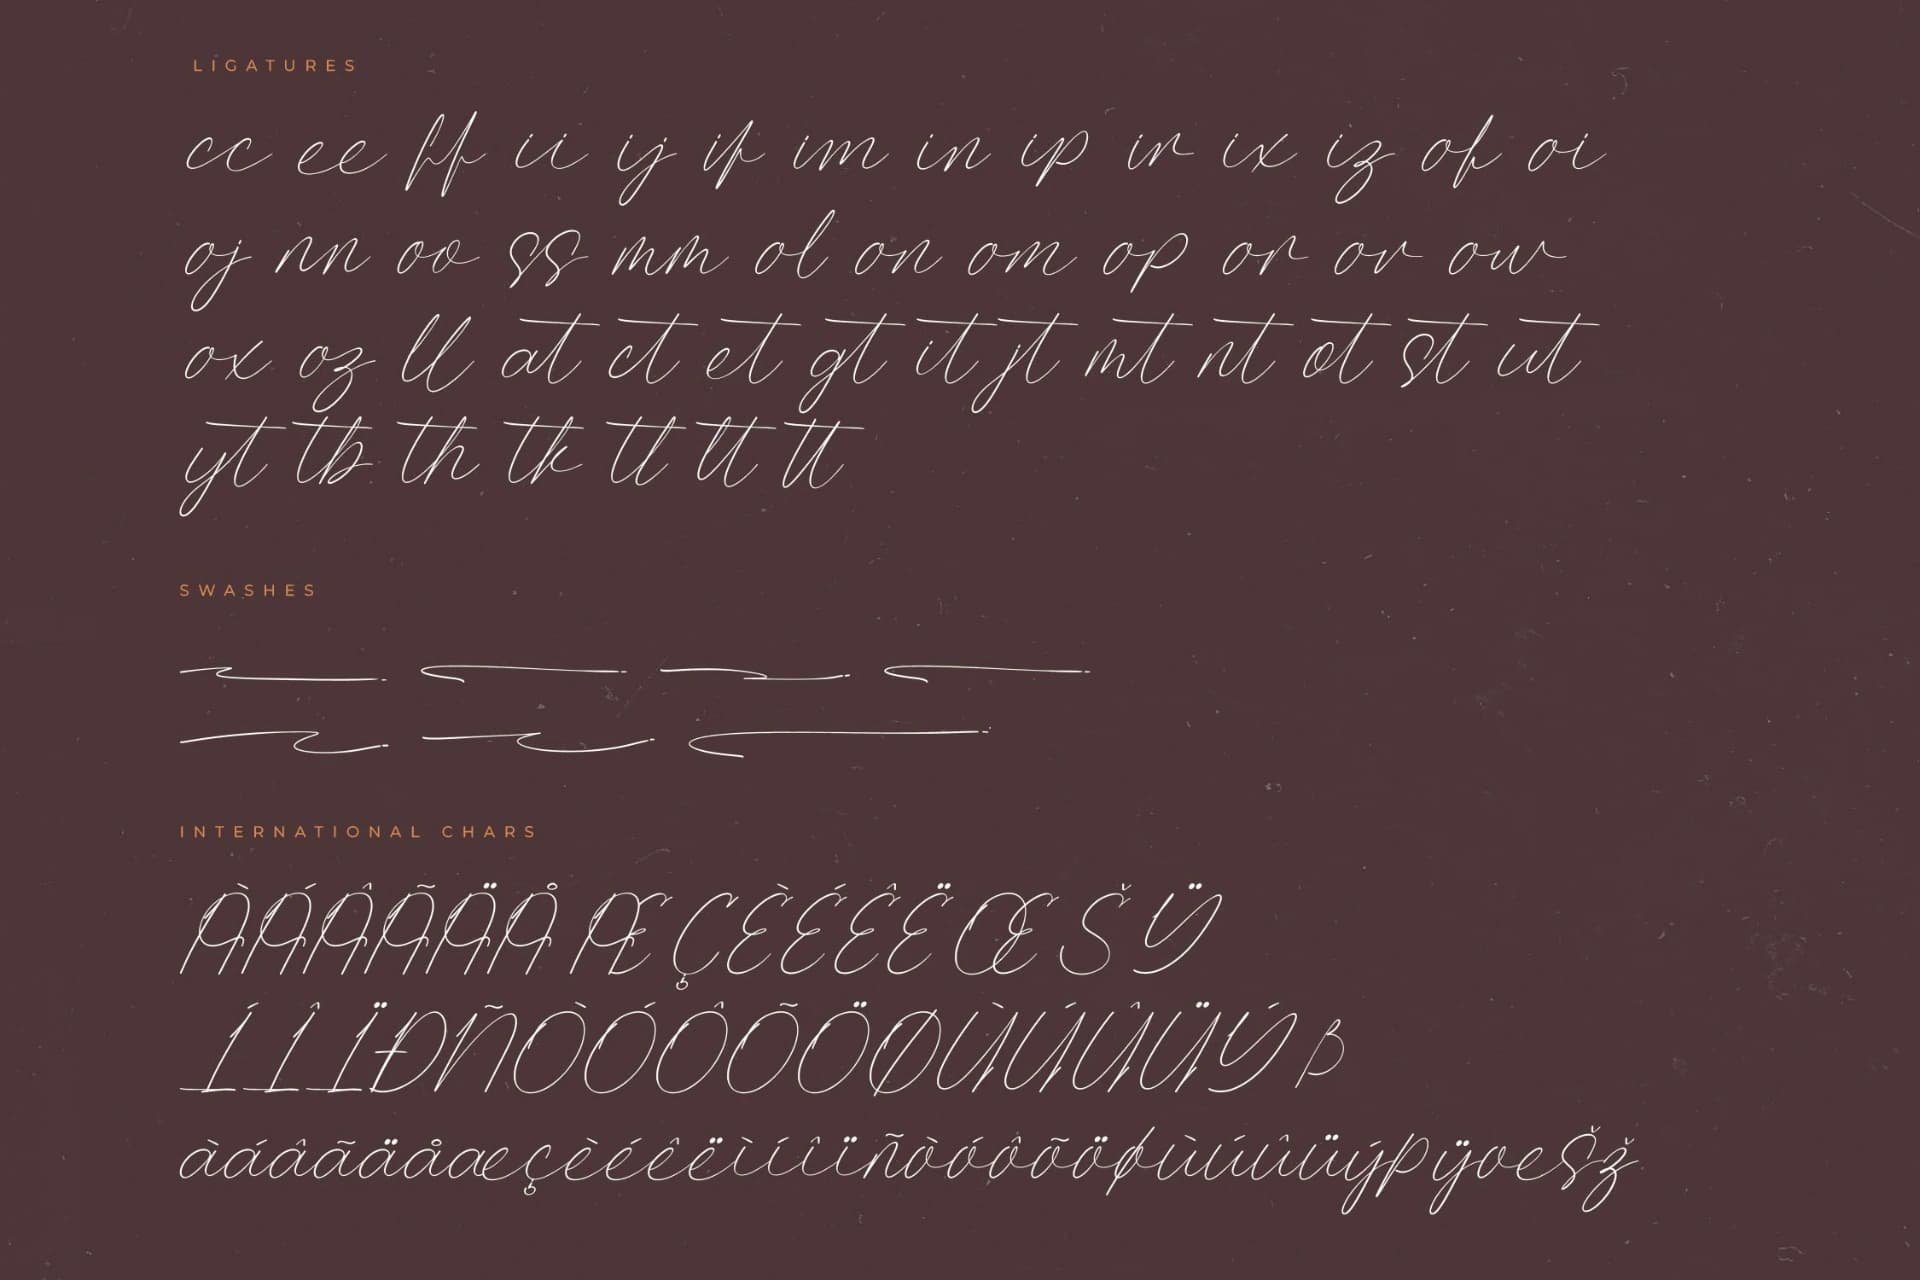 LIGATURES
cc ee ff ii ij if im in ip ir ix iz of oi
oj nn oo ss mm ol on om op or ov ow
ox oz ll at ct et gt it jt mt nt ot st ut
yt tb th tk tl lt tt
SWASHES
INTERNATIONAL CHARS
ÀÁÂÃÄÅ Æ ÇÈÉÊË Œ Š Ÿ
ÍÎÏÐÑÒÓÔÕÖØÙÚÛÜÝ ß
àáâãäåæçèéêëìíîïñòóôõöøùúûüýþÿœšž